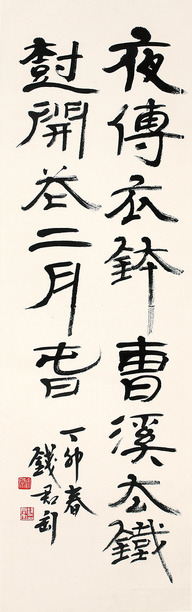 夜傳衣鉢曹溪去鐵
樹開花二月旾
丁卯春
錢君匋